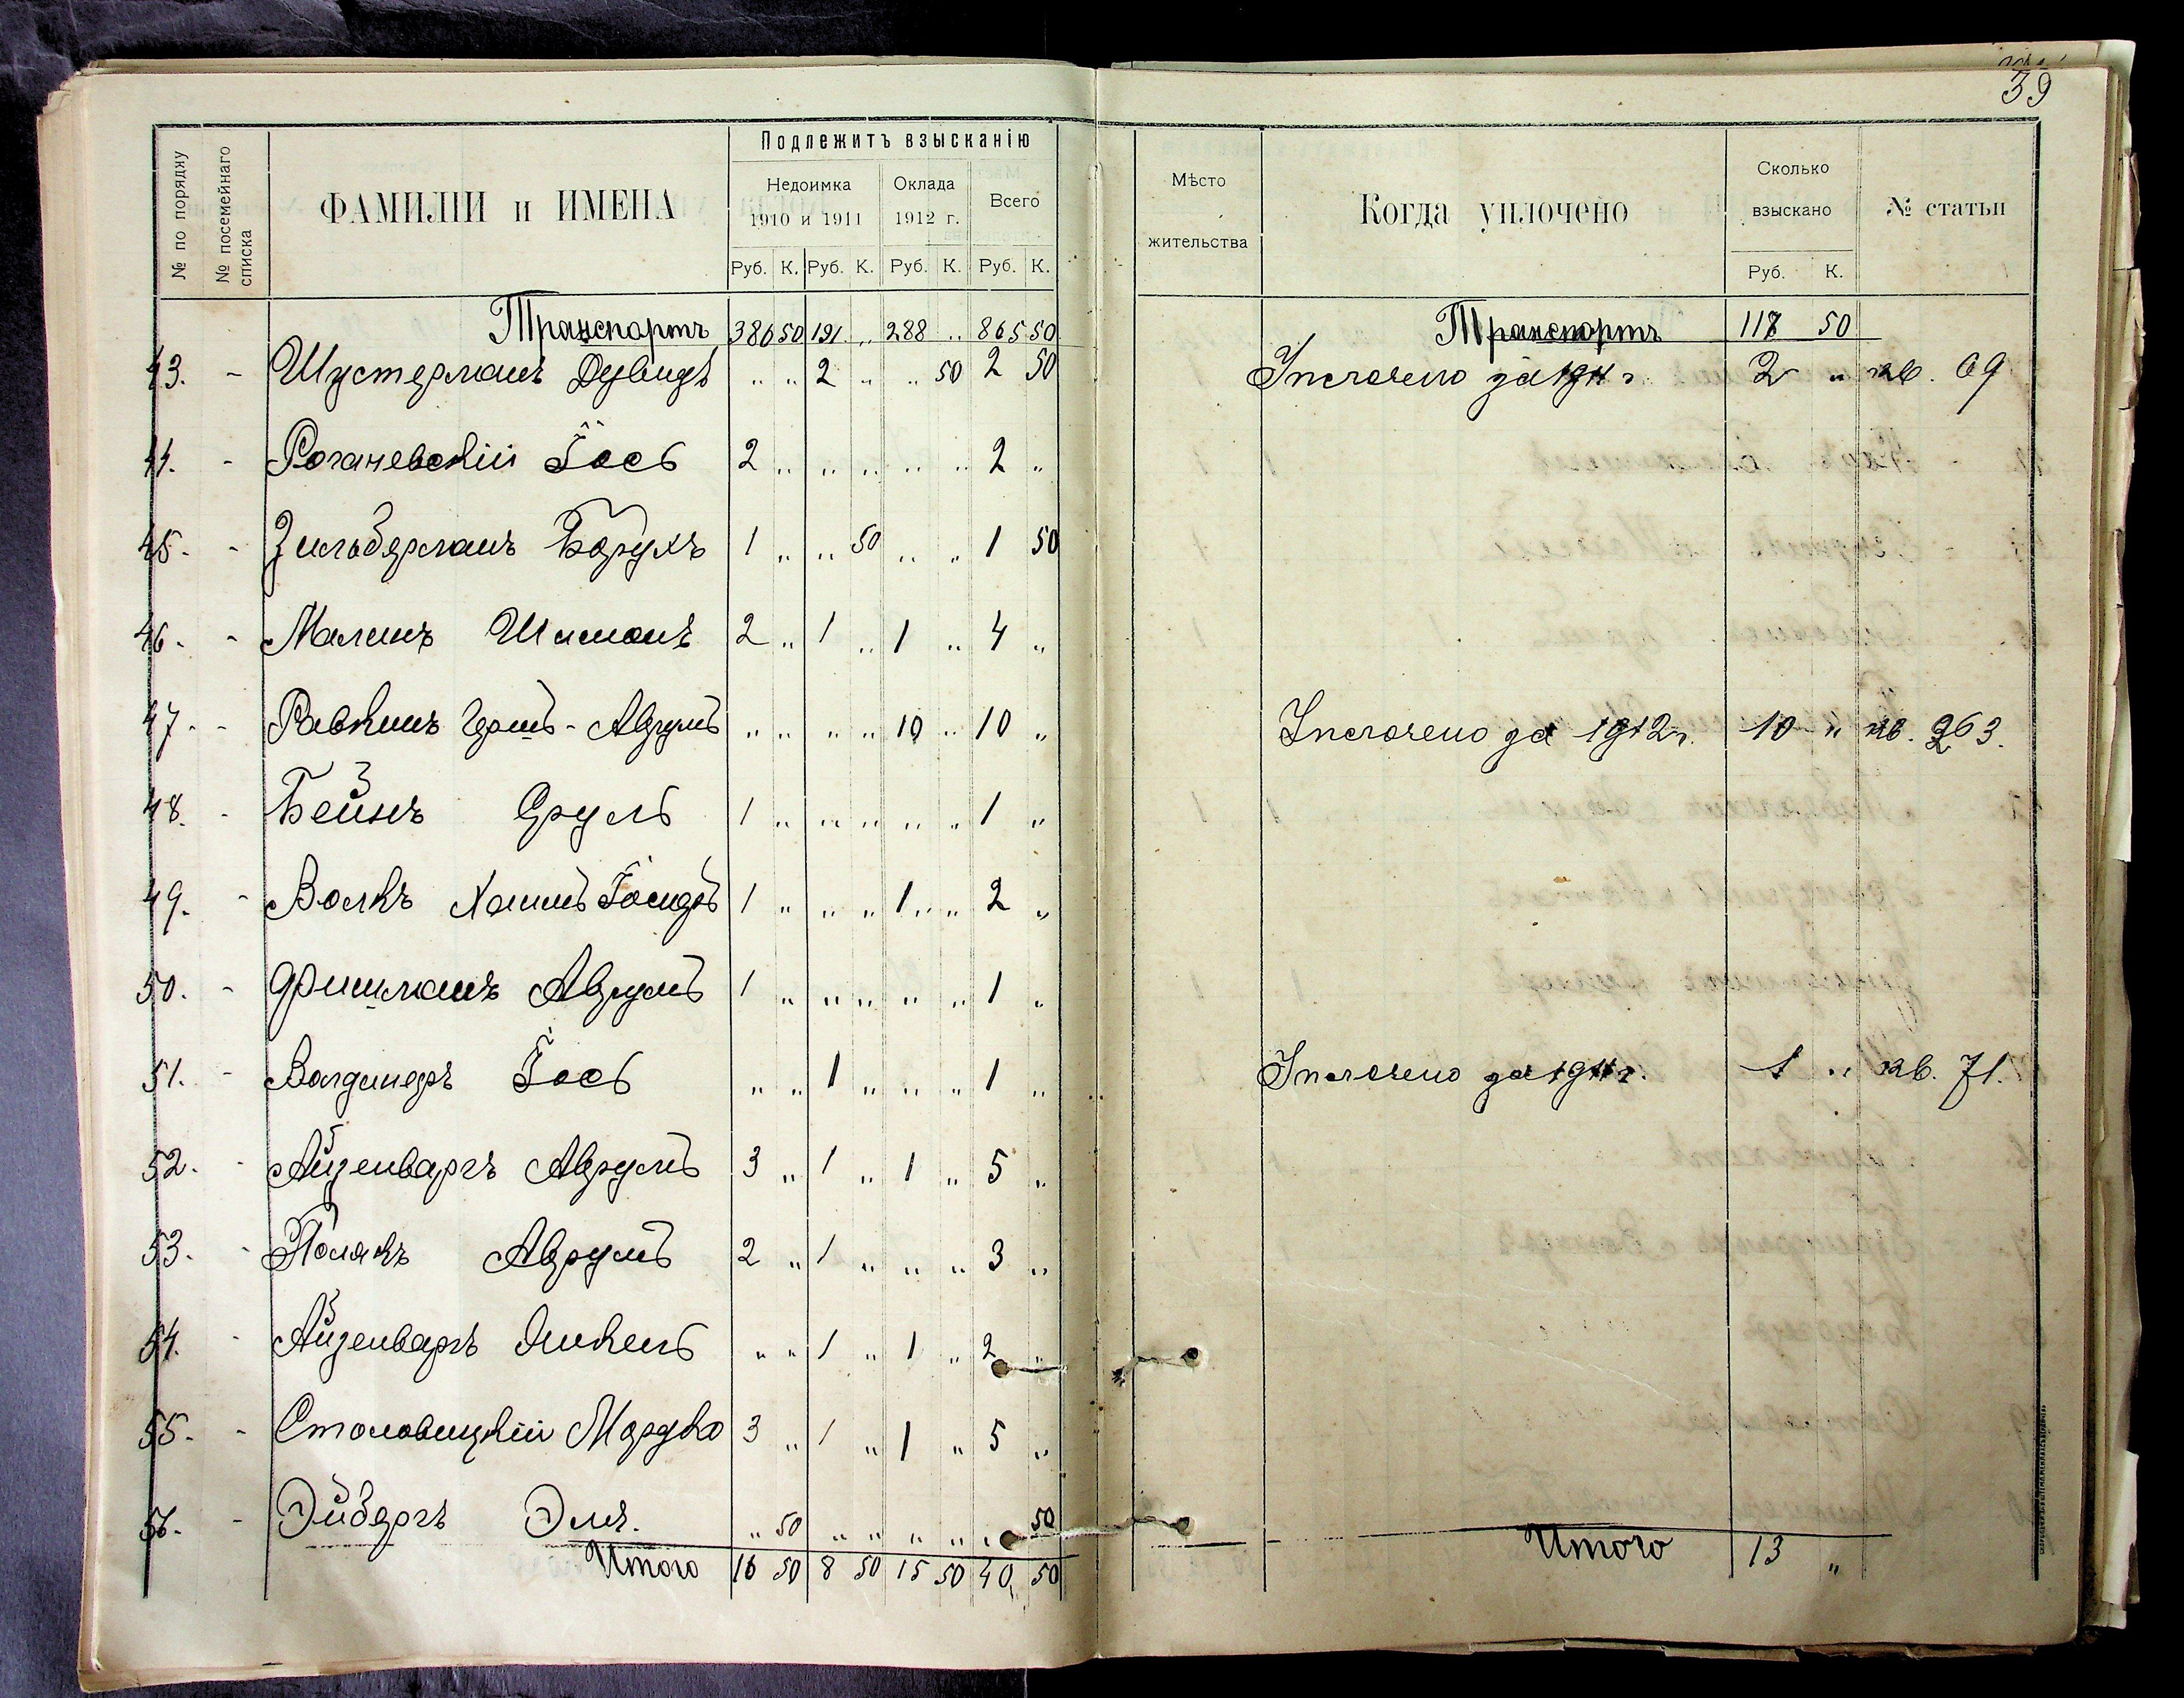 39
№ по порядку
№ посемейнаго списка
ФАМИЛІИ и ИМЕНА
Подлежитъ взысканію
Недоимка 1910 и 1911
Оклада 1912 г.
Всего
Руб. К. Руб. К. Руб. К. Руб. К.
Мѣсто жительства
Когда уплочено
Сколько взыскано
Руб. К.
№ статьи
Транспортъ 386 50 191 „ 288 „ 865 50 Транспортъ 117 50
43. - Шустерманъ Дувидъ „ „ 2 „ „ 50 2 50 Уплочено за 1911 г. 2 „ кв. 69
44. - Рогачевскій Іось 2 „ „ „ „ „ 2 „
45. - Зильберманъ Борухъ 1 „ „ 50 „ „ 1 50
46. - Малинъ Шимонъ 2 „ 1 „ 1 „ 4 „
47. - Равкинъ Гершъ-Аврумъ „ „ „ „ 10 „ 10 „ Уплочено за 1912 г. 10 „ кв. 263.
48. - Бейнъ Сруль 1 „ „ „ „ „ 1 „
49. - Волкъ Хаимъ 1 „ „ „ 1 „ 2 „
50. - Фишманъ Аврумъ 1 „ „ „ „ „ 1 „
51. - Волдинеръ Іось „ „ 1 „ „ „ 1 „ Уплочено за 1911 г. 1 „ кв. 71.
52. - Айзенваргъ Аврумъ 3 „ 1 „ 1 „ 5 „
53. - Полякъ Аврумъ 2 „ 1 „ „ „ 3 „
54. - Айзенваргъ Янкель „ „ 1 „ 1 „ 2 „
55. - Столовицкій Мордко 3 „ 1 „ 1 „ 5 „
56. - Эйдергъ Эля. „ 50 „ „ „ „ „ 50
Итого 16 50 8 50 15 50 40 50 Итого 13 „